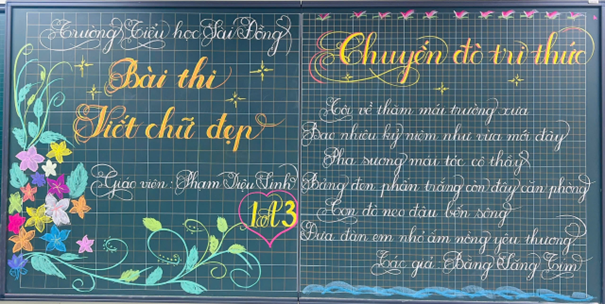 Trường Tiểu học Sài Đồng
Bài thi
Viết chữ đẹp
Giáo viên: Phạm Diệu Linh
1A3
Chuyến đò tri thức
Tôi về thăm mái trường xưa
Bao nhiêu kỷ niệm như vừa mới đây
Pha sương màu tóc cô thầy
Bảng đen phấn trắng còn đầy căn phòng
Con đò neo đậu bến sông
Đưa đàn em nhỏ ấm nồng yêu thương
Tác giả Bằng Lăng Tím